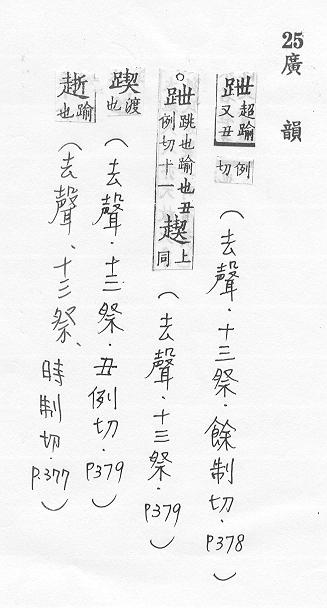 25 廣韻
跇 超踰又丑例切（去聲．十三祭．餘制切．P378）
○跇 跳也踰也丑例切十一 䟷 上同（去聲．十三祭．P379）
踶 渡也（去聲．十三祭．丑例切．P379）
逝 踰也（去聲．十三祭、時制切．P.377）